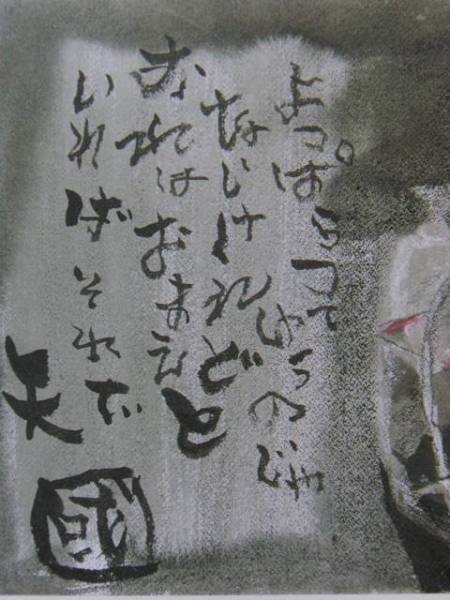 よっぱらって
ゆうのじゃ
ないけれど
おれはおまえと
いればそれで
天
國